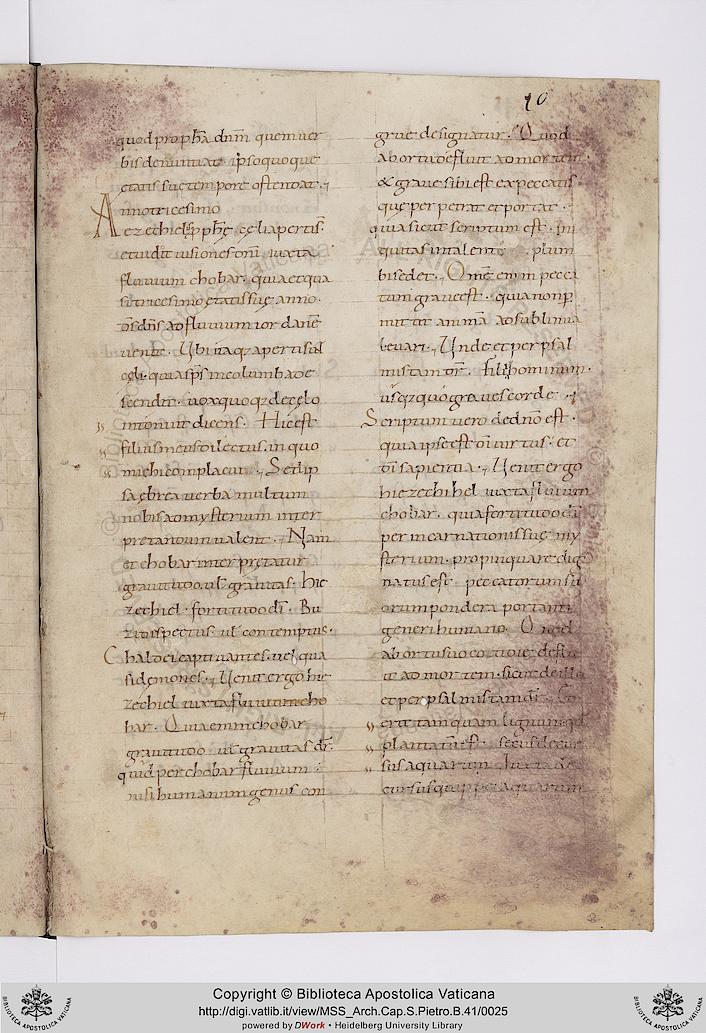 10
quod propha dnm quem uer
bis denuntiat ipso quoque
etatis sue tempore ostendat
Anno tricesimo
ezechiel pphe celi apertis
et uidit uisiones dni iuxta
fluuium chobar. quia et qua
si tricesimo etatis sue anno.
dns ad fluuium iordane
uenit. Ubi itaq; apertis
celi. quia sps in columba de
scendit. uox quoq; de celo
intonuit dicens. Hic est
filius meus dilectus. in quo
michi complacui. Sed ip
sa ebrea uerba multum
nobis ad mysterium inter
pretandum ualent. Nam
et chobar inter pretatur
grauitudo. ul grauitas. hie
zechiel. fortitudo di. Bu
zi dispectus. ul contemptus.
Chaldei captiuantes. uel qua
si demones. Uenit ergo hie
zechiel iuxta fluuium cho
bar. Quia enim chobar
grauitudo ul grauitas dr.
quid per chobar fluuium
nisi humanum genus con
grue designatur. Quod
ab ortu defluit ad mortem.
& graue sibi est ex peccatis
que per petrat et portat.
quia sicut scriptum est. ini
quitas in talento plum
bi sedet. Omne enim pecca
tum graue est. quia non p
mittit animā ad sublimia
leuari. Unde et per psal
mistam dr. filii hominum.
usq; quo graues corde
Scriptum uero de dno est.
quia ipse est di uirtus. et
di sapientia. Uenit ergo
hiezechihel iuxta fluuium
chobar. quia fortitudo di
per incarnationis sue my
sterium. propinquare dig
natus est peccatorum su
orum pondera portanti
generi humano. Quod
ab ortu suo cottidie deflu
it ad mortem. sicut de illo
et per psalmistam dr. Et
erit tamquam lignum qd
plantatu est. secus decur
sus aquarum. Iuxta de
cursus quippe aquarum
Copyright © Biblioteca Apostolica Vaticana
http://digi.vatlib.it/view/MSS_Arch.Cap.S.Pietro.B.41/0025
powered by DWork • Heidelberg University Library